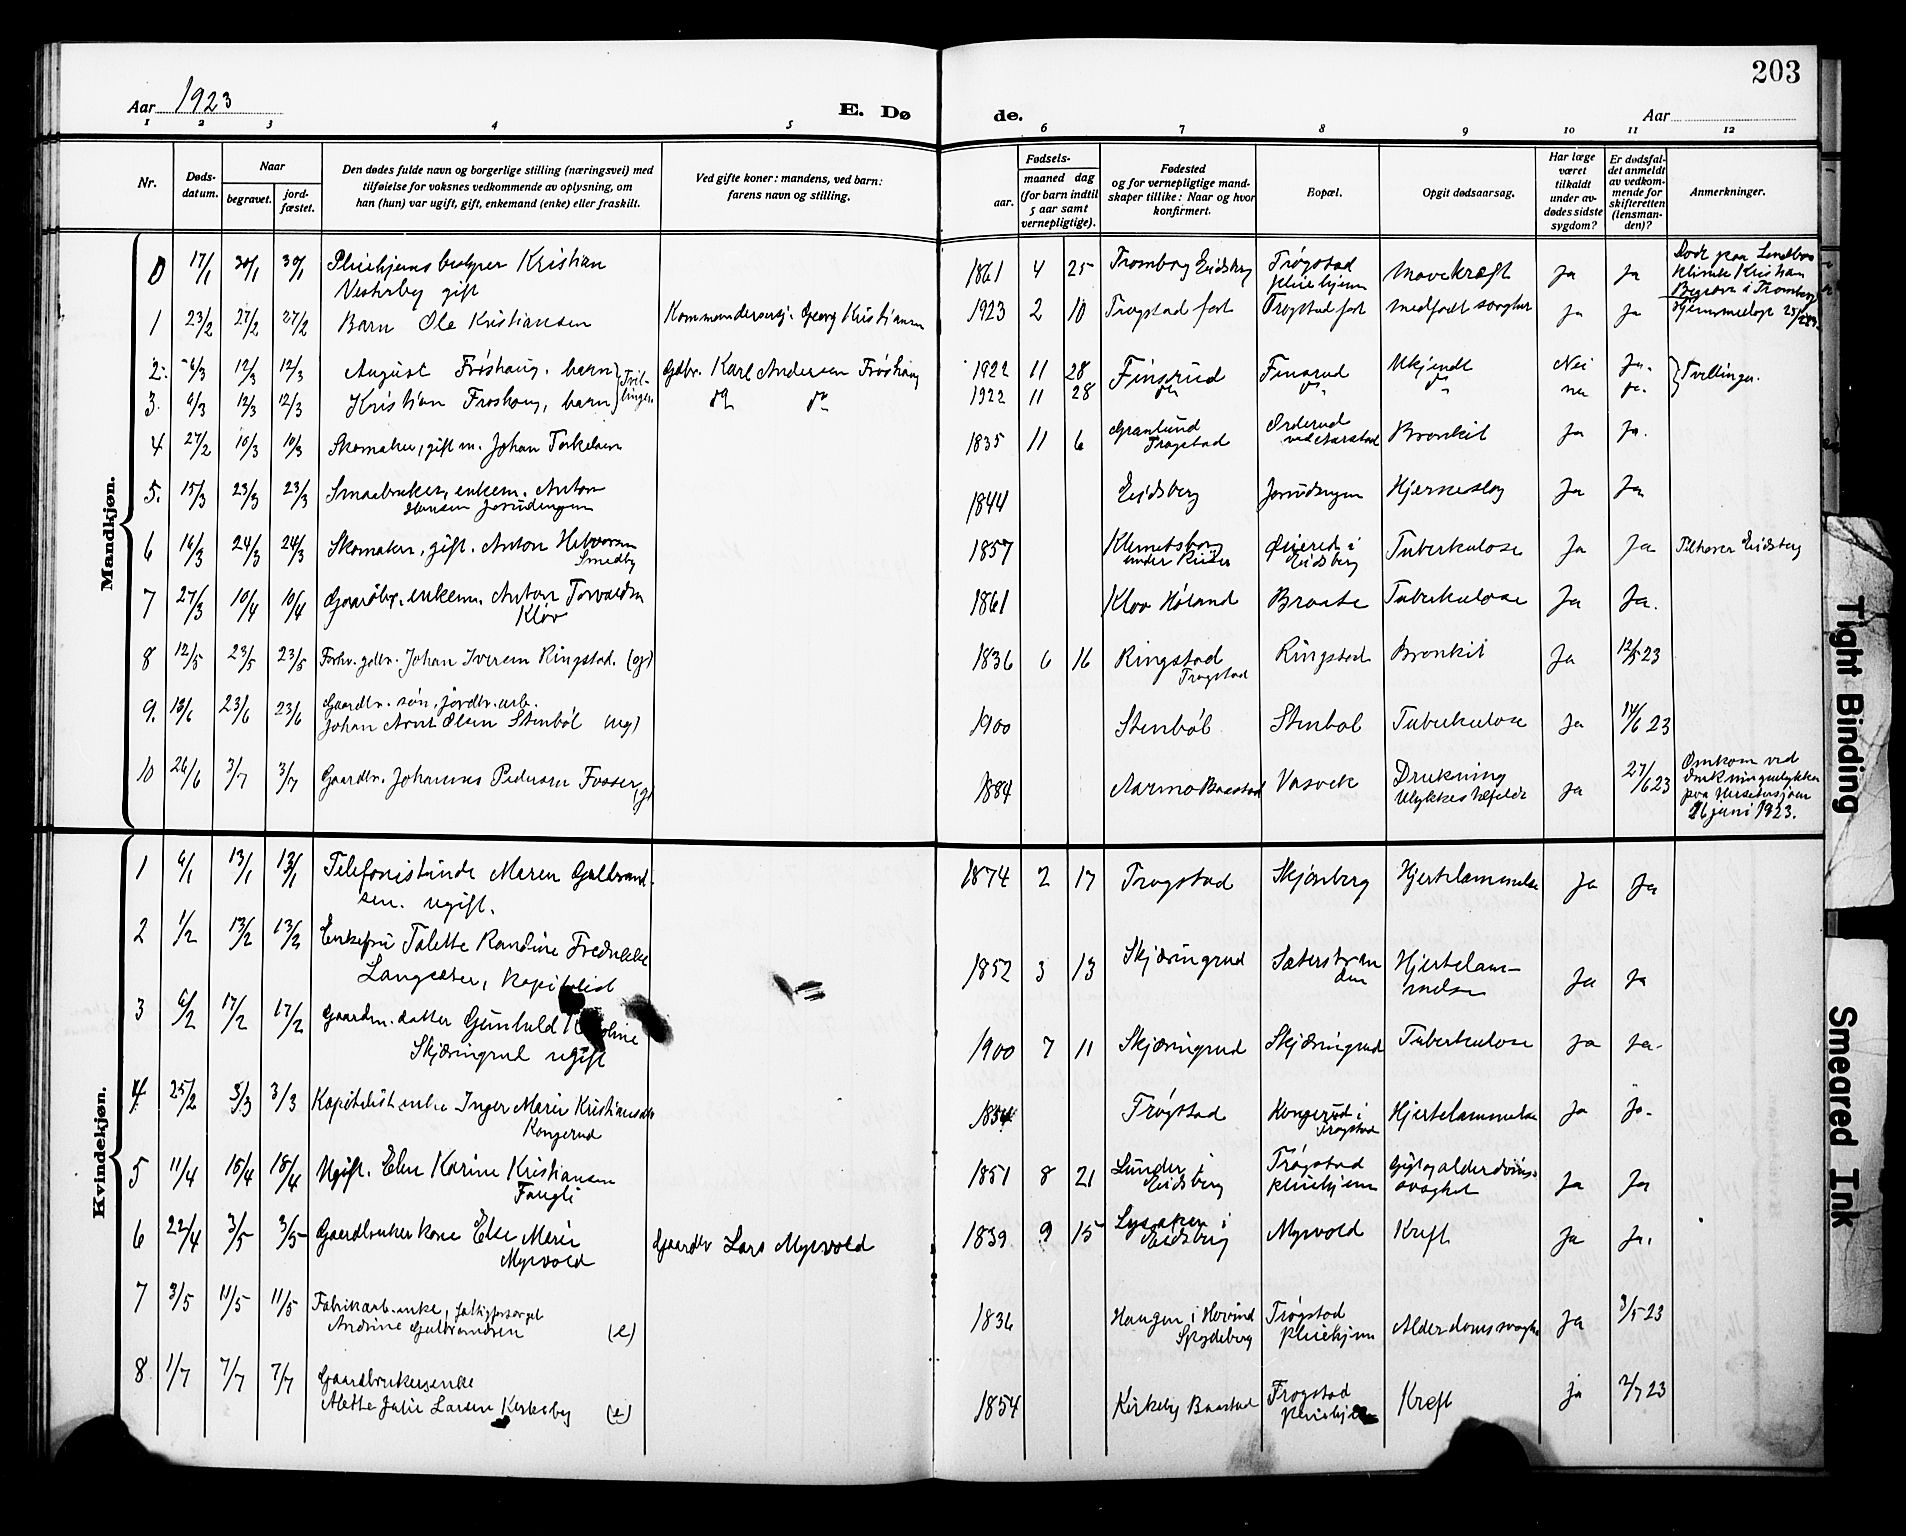 203
Aar 1923
E. Dø
de.
Aar
1 2 3 4 5 6 7 8 9 10 11 12
Nr.
Døds-
datum.
Naar
begravet.
jord-
fæstet.
Den dødes fulde navn og borgerlige stilling (næringsvei) med
tilføielse for voksnes vedkommende av oplysning, om
han (hun) var ugift, gift, enkemand (enke) eller fraskilt.
Ved gifte koner: mandens, ved barn:
farens navn og stilling.
Fødsels-
aar.
maaned dag
(for barn indtil
5 aar samt
vernepligtige).
Fødested
og for vernepligtige mand-
skaper tillike: Naar og hvor
konfirmert.
Bopæl.
Opgit dødsaarsag.
Har læge
været
tilkaldt
under av-
dødes sidste
sygdom?
Er dødsfal-
det anmeldt
av vedkom-
mende for
skifteretten
(lensman-
den)?
Anmerkninger.
Mandkjøn.
0 17/1 30/1 30/1 Pleiehjemsbestyrer Kristian
Vesterby gift 1861 4 25 Tromborg Eidsberg Trøgstad
Pleiehjem Mavekræft Ja Ja
1 23/2 27/2 27/2 Barn Ole Kristiansen Georg Kristiansen 1923 2 10 Trøgstad fort Trøgstad fort medfødt svaghet Ja Ja
2. 6/3 12/3 12/3 August Frøshaug, barn Gdbr. Karl Andersen Frøshaug 1922 11 28 Finsrud Finsrud Ukjendt Nei Ja. Tvillinger.
3. 6/3 12/3 12/3 Kristian Frøshaug, barn Tvil-
linger do do 1922 11 28 do do " nei Ja.
4 27/2 10/3 10/3 Skomaker, gift m. Johan Torkelsen 1835 11 6 Granlund
Trøgstad Bronkit Ja Ja.
5. 15/3 23/3 23/3 Smaabruker, enkem. Anton
Hansen Jorudengen 1844 Eidsberg Jorudengen Hjerneslag Ja Ja
6 16/3 24/3 24/3 Skomaker, gift. Anton Halvorsen
Smedby 1857 Klemetsborg
under Riiser i
Eidsberg Tuberkulose Ja Ja Tilhører Eidsberg
7 27/3 10/4 10/4 Gaardbr. enkem. Anton Torvaldsen
Kløv 1861 Kløv Høland Braate Tuberkulose Ja Ja.
8 12/5 23/5 23/5 Forhv. gdbr. Johan Iversen Ringstad. (g) 1836 6 16 Ringstad
Trøgstad Ringstad Bronkit Ja 12/5 23
9. 13/6 23/6 23/6 Gaardbr. søn, jordbr. arb.
Johan Arnt Olsen Stenbøl (ug) 1900 Stenbøl Stenbøl Tuberkulose Ja 14/6 23
10 26/6 3/7 3/7 Gaardbr. Johannes Pedersen Fosser (g) 1884 Aarmo Baastad Vasvek Drukning
Ulykkestilfelde Ja 27/6 23 Omkom ved
drukningsulykken
paa
26 juni 1923.
Kvindekjøn.
1 6/1 13/1 13/1 Telefonistinde Maren Gulbrand-
sen. ugift. 1874 2 17 Trøgstad Skjønberg Hjertelammelse Ja Ja
2 1/2 13/2 13/2 Enkefru Talette Randine Fredrikke
Langsæter, kapitalist 1852 3 13 Skjæringrud Sæterstran
den Hjertelam-
melse Ja Ja
3 6/2 17/2 17/2 Gaardm. datter Gunhild
Skjæringrud ugift 1900 7 11 Skjæringrud Skjæringrud Tuberkulose Ja Ja.
4. 25/2 3/3 3/3 Kapitalist enke Inger Marie Kristiansen
Kongerud 1854 Trøgstad Kongerud i
Trøgstad Hjertelammelse Ja Ja.
5 11/4 18/4 18/4 Ugift. Elen Karine Kristiansen
Fangli 1851 8 21 Lunder i
Eidsberg Trøgstad
pleiehjem Gigt og alderdoms-
svaghet Ja Ja
6 22/4 3/5 3/5 Gaardbruker kone Else Marie
Myrvold Gaardbr Lars Myrvold 1839 9 15 i
Eidsberg Myrvold Kreft Ja Ja.
7 3/5 11/5 11/5 Fabrikarb. enke, fattigforsørget
Andrine Gulbrandsen (e) 1836 Haugen i Hovind
Spydeberg Trøgstad
pleiehjem Alderdomssvaghet Ja 3/5 23
8 1/7 7/7 7/7 Gaardbrukersenke
Alette Julie Larsen Kirkeby (e) 1854 Kirkeby Baastad Trøgstad
pleiehjem Kreft ja 2/7 23
Tight Binding
Smeared Ink